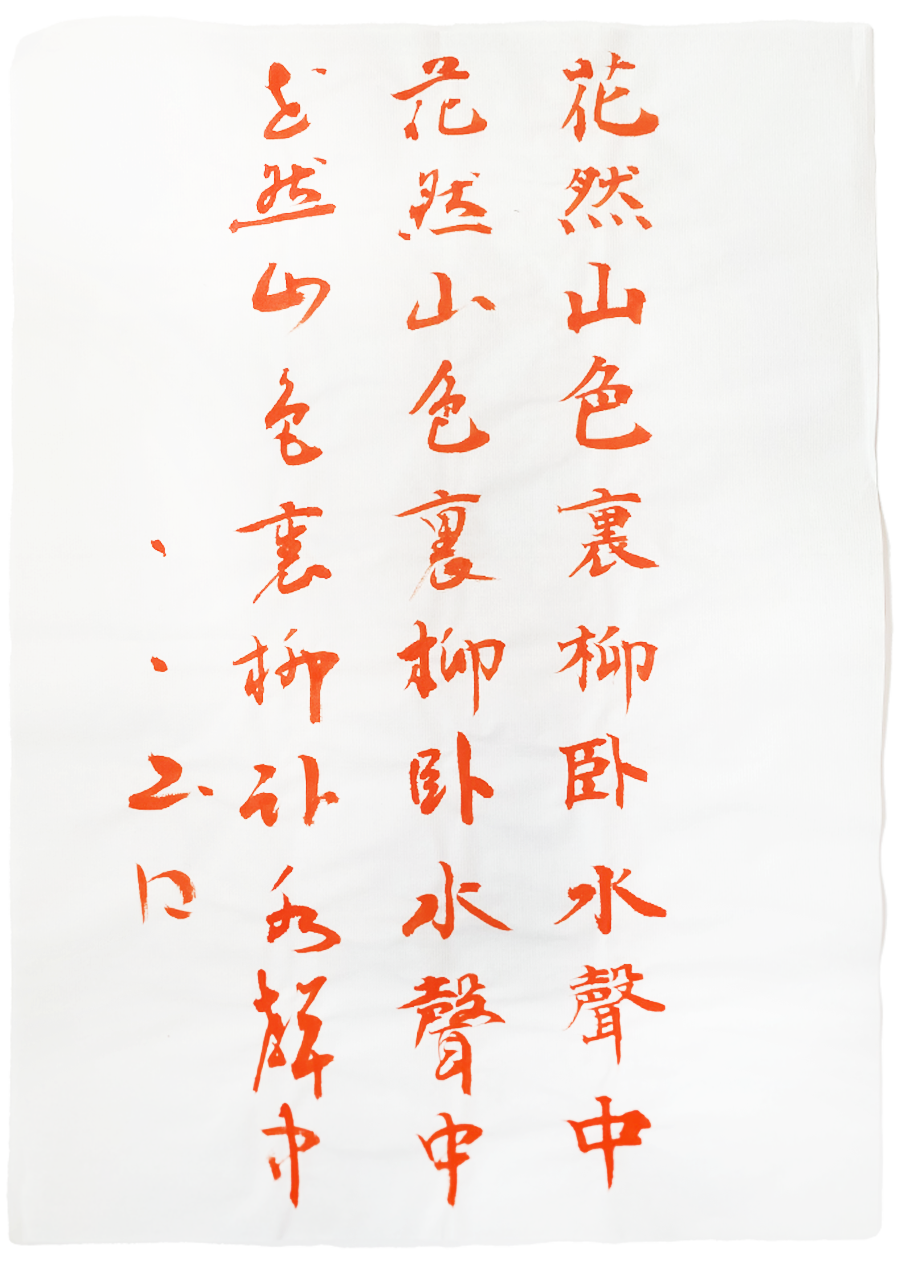 花然山色裏柳卧水聲中
花然山色裏柳卧水聲中
花然山色裏柳卧水聲中